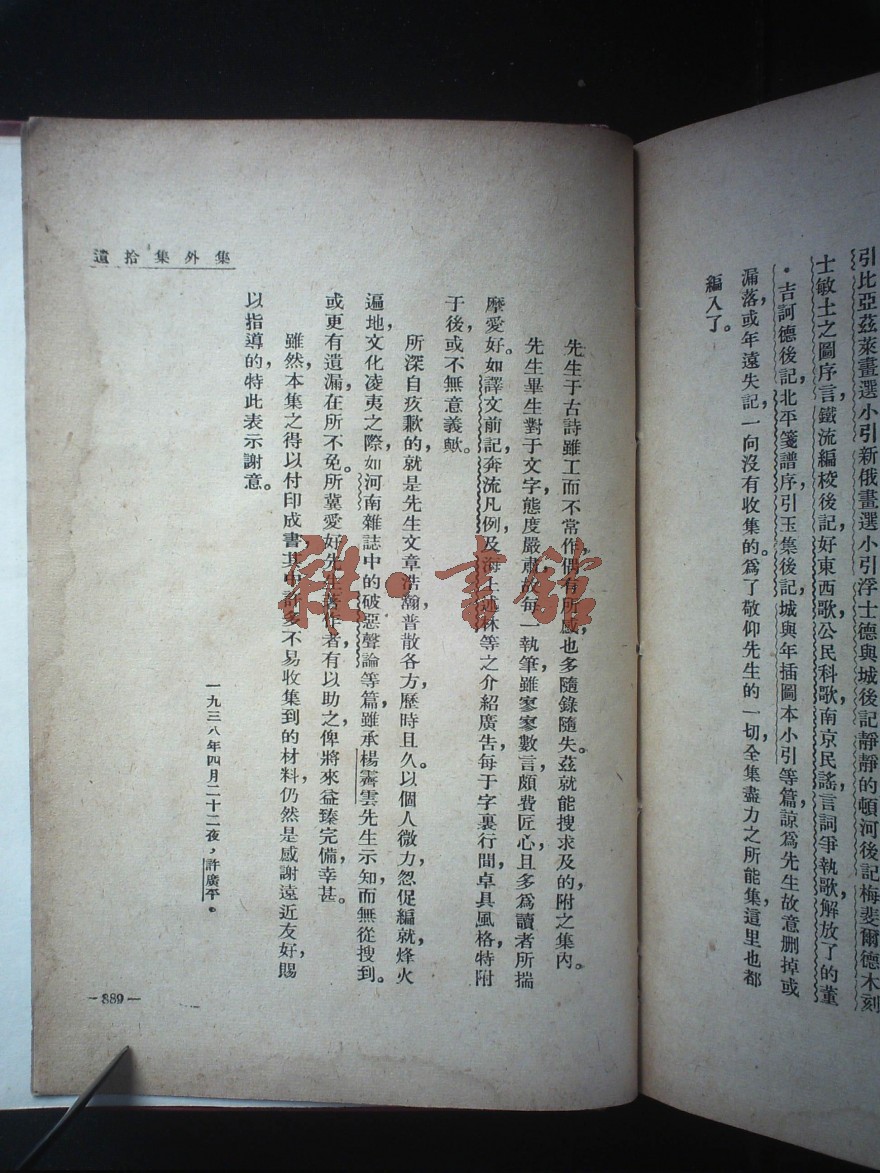 引比亞茲萊畫選小引新俄畫選小引浮士德與城後記靜靜的頓河後記梅斐爾德木刻
士敏土之圖序言，鐵流編校後記，好東西歌公民科歌南京民謠言詞爭執歌解放了的董
・吉訶德後記，北平箋譜序，引玉集後記，城與年插圖本小引等篇，諒爲先生故意刪掉或
漏落，或年遠失記，一向沒有收集的。爲了敬仰先生的一切，全集盡力之所能集，這里也都
編入了。
集外集拾遺
先生于古詩雖工而不常作，偶有所感，也多隨錄隨失。茲就能搜求及的，附之集內。
先生畢生對于文字態度嚴肅，故每一執筆，雖寥寥數言，頗費匠心，且多爲讀者所揣
摩愛好。如譯文前記，奔流凡例，及海上述林等之介紹廣告，每于字裏行間，卓具風格，特附
于後，或不無意義歟。
所深自疚歉的，就是先生文章浩瀚，普散各方，歷時且久。以個人微力，怱促編就，烽火
遍地，文化凌夷之際，如河南雜誌中的破惡聲論等篇，雖承楊霽雲先生示知，而無從搜到。
或更有遺漏，在所不免。所冀愛好先生著作者，有以助之，俾將來益臻完備，幸甚。
雖然，本集之得以付印成書，其中許多不易收集到的材料，仍然是感謝遠近友好，賜
以指導的，特此表示謝意。
一九三八年四月二十二夜，許廣平。
—889—
雜·書館